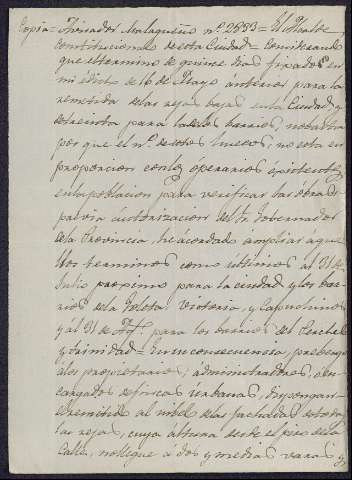 Copia = Avisador Malagueño nº 2883 = El Alcalde
constitucional de esta Ciudad = Considerando
que el termino de quince dias fixados en
mi edicto de 16 de Mayo anterior para la
remetida de las rejas bajas en la Ciudad, y
de treinta para la de los barrios, no basta
por que el nº de estos huecos, no esta en
proporcion con los operarios existentes
en la poblacion para verificar las obras
previa autorizacion del Sr Gobernador
de la Provincia, he acordado ampliar aque
llos terminos como ultimos al 31 de
Julio proximo para la ciudad y los bar
rios de la Goleta, Victoria, y Capuchinos
y al 31 de para los barrios del Perchel
y Trinidad = En su consecuencia, prebengo
a los propietarios, administradores, ó en
cargados de fincas urbanas, dispongan
el remetido al nibel de las fachadas de todas
las rejas, cuya altura desde el piso de la
Calle, no llegue á dos y medias varas y